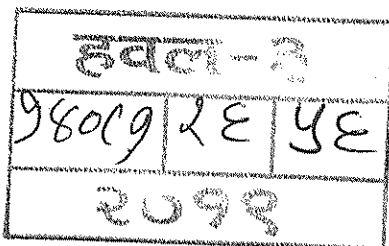 हवल-३
१४०७ २६ ५६
२०१९